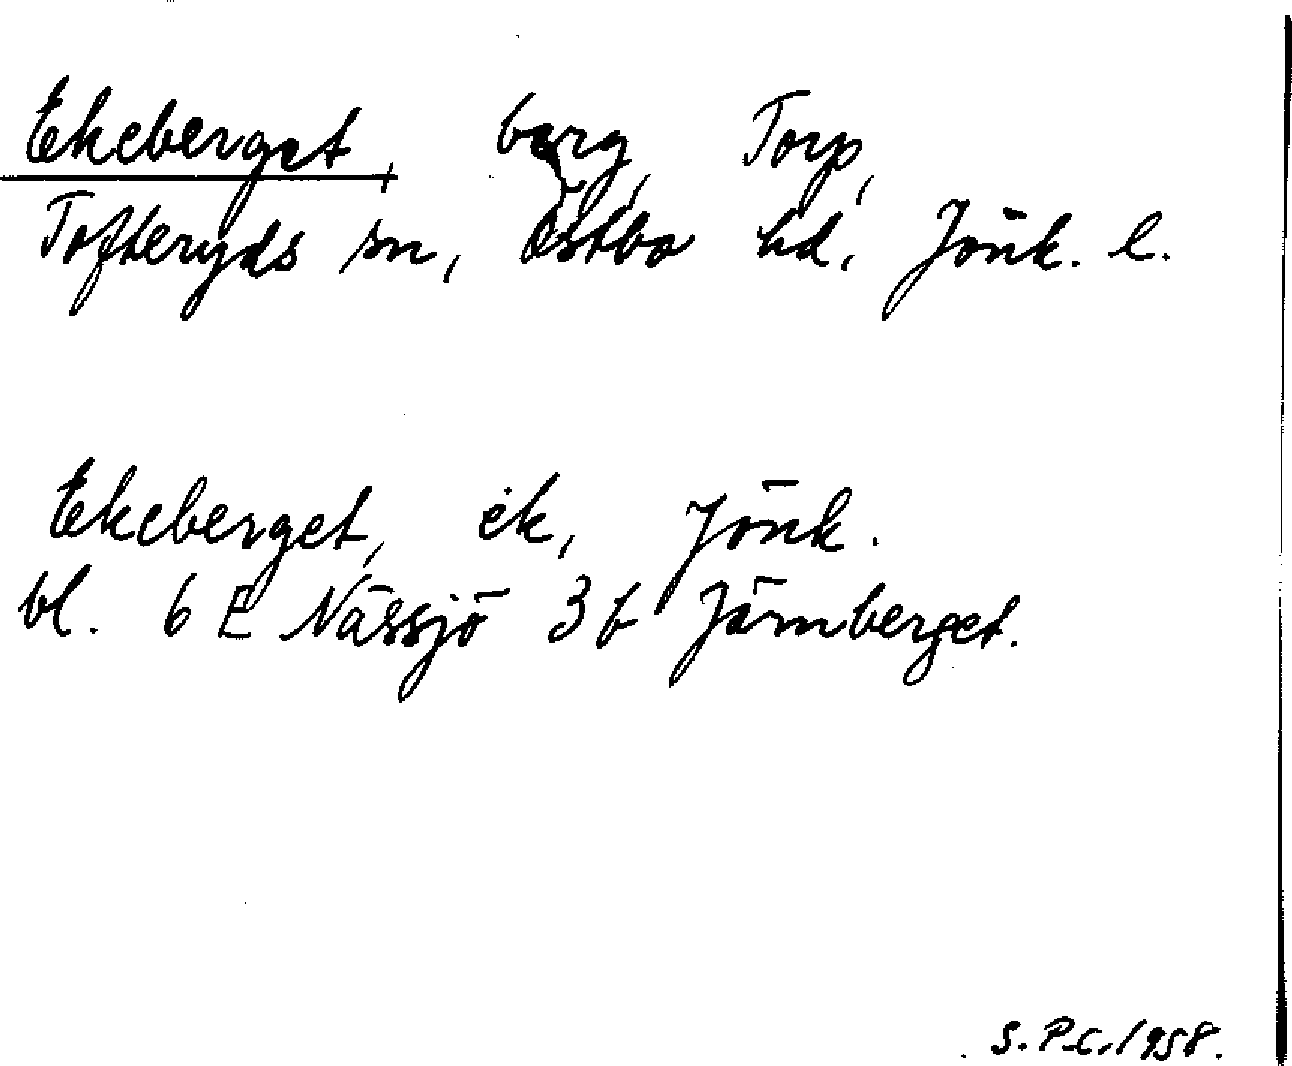 Ekeberget, berg, Torp,
Tofteryds sn, Östbo hd, Jönk. l.
Ekeberget, ek, Jönk.
bl. 6 E Nässjö 3 b Järnberget.
S. P-c. 1958.